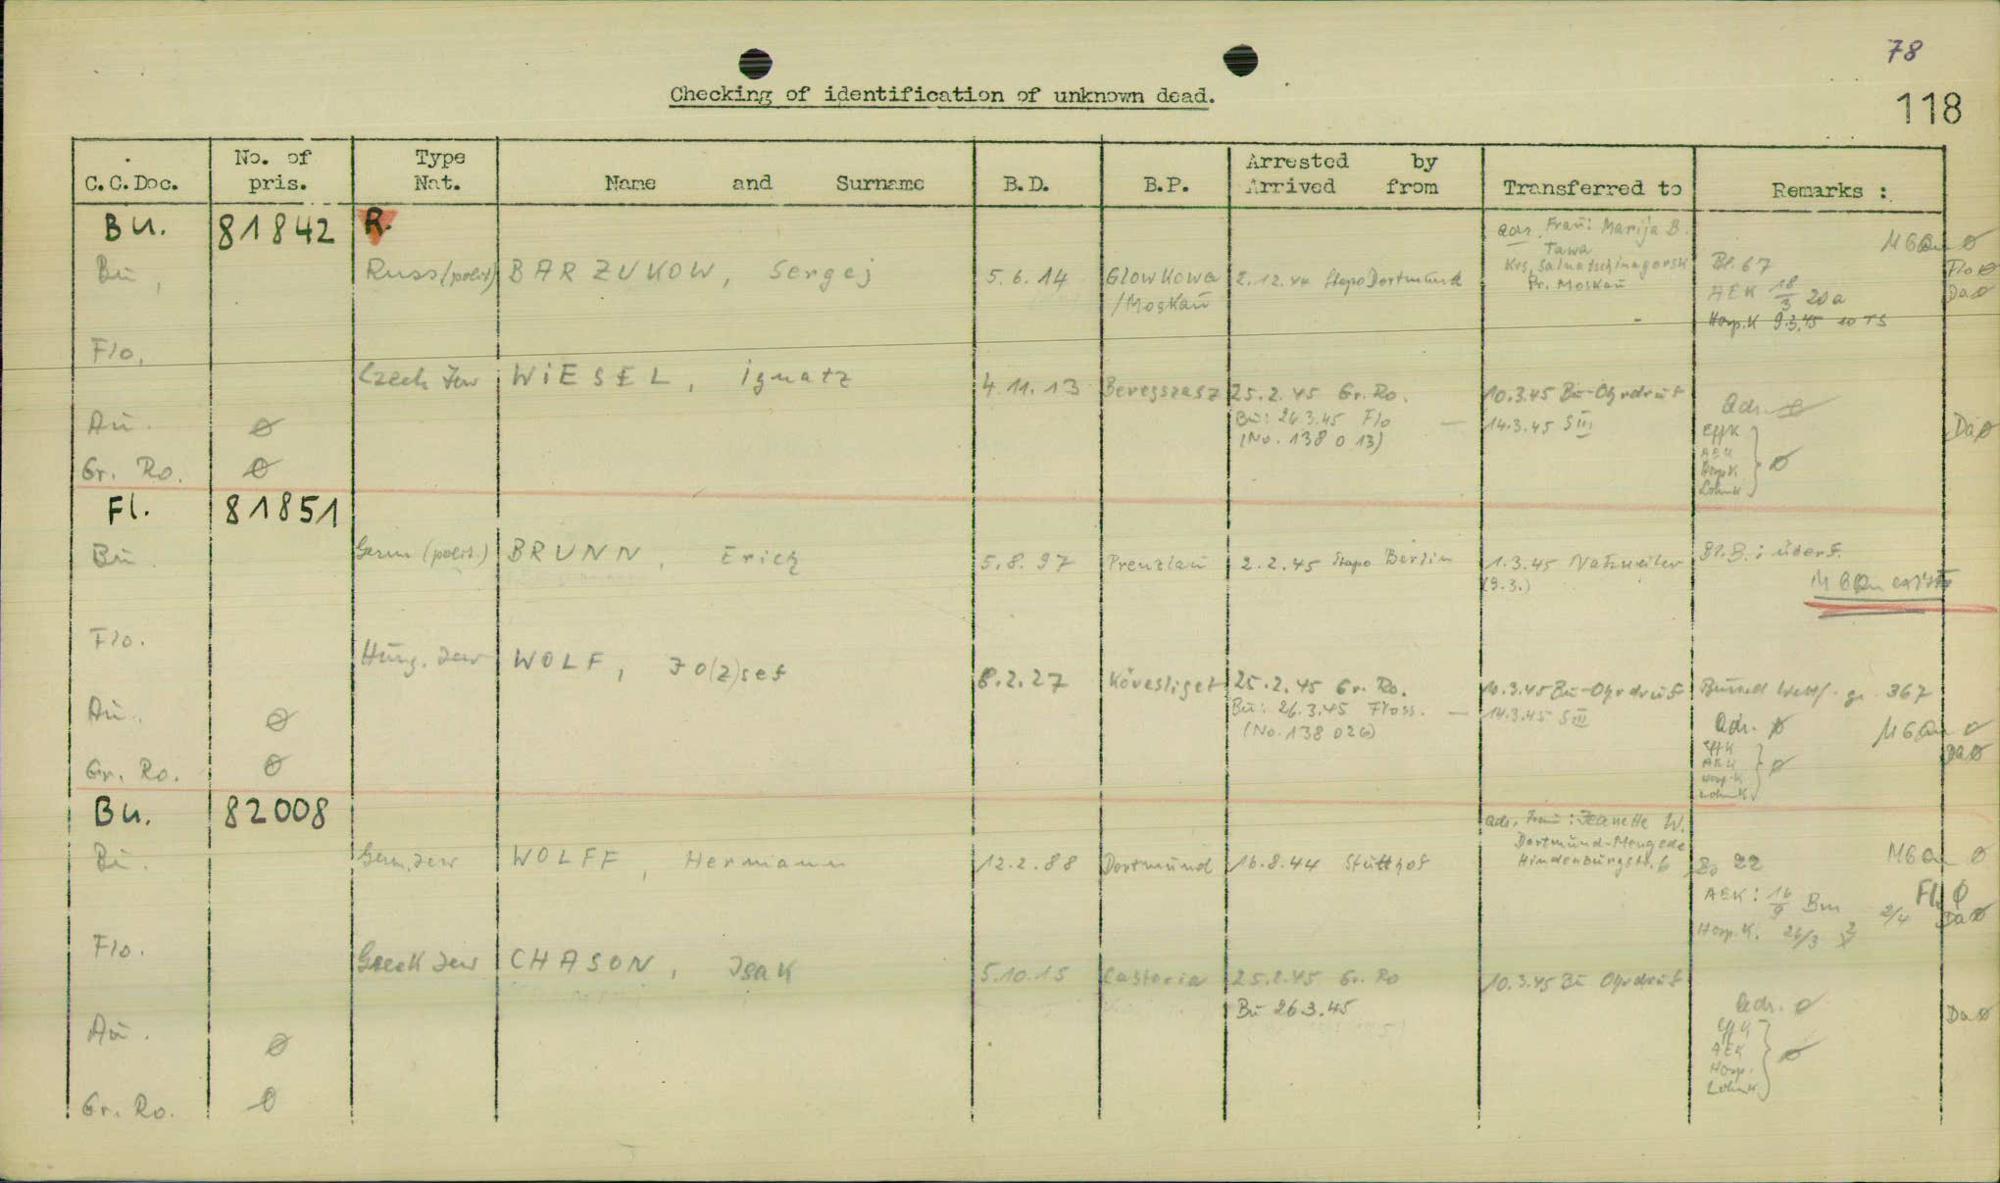 78
118
Checking of identification of unknown dead.
C.C.Doc. No. of pris. Type Nat. Name and Surname B.D. B.P. Arrested by Arrived from Transferred to Remarks :
Bu. 81842 R.
adr. Frau: Marija B.
Tawa
Pr. Moskau
Bu, Russ(polit) BARZUKOW, Sergej 5.6.14 Glowkowa /Moskau 2.12.44 Stapo Dortmund
MGQu ø
Bl. 67
Flo ø
Da ø
AEK 18/3 20a
Hosp.K 9.3.45 10 TS
Flo,
Czech Jew WiESEL, ignatz 4.11.13 Beregszasz 25.2.45 Gr. Ro. 10.3.45 Bu-Ohrdruf
Bu: 26.3.45 Flo — 14.3.45 S III
(No. 138 013)
Adr. ø
Da ø
EffK
AEK
HospK
LohnK
} ø
Au. ø
Gr. Ro. ø
Fl. 81851
Bu Germ (polit.) BRUNN, Erich 5.8.97 Prenzlau 2.2.45 Stapo Berlin 1.3.45 Natzweiler
(9.3.)
Bl.B.: überf.
MGQu exist
Flo.
Hung. Jew WOLF, Jo(z)sef 8.2.27 Kövesliget 25.2.45 Gr. Ro. 10.3.45 Bu-Ohrdruf
Bu: 26.3.45 Floss. — 14.3.45 S III
(No. 138 026)
367
Adr. ø MGQu ø
Da ø
EffK
AEK
Hosp.K
LohnK
} ø
Au. ø
Gr. Ro. ø
Bu. 82008
adr. Frau: Jeanette W.
Dortmund-Mengede
Hindenburgstr. 6
Bu. Germ. Jew WOLFF, Hermann 12.2.88 Dortmund 16.8.44 Stutthof
22 MGQu ø
Fl. ø
AEK: 16/9 Bu 2/4 Da ø
Hosp.K. 26/3
Flo.
Greek Jew CHASON, Isak 5.10.15 Castoria 25.2.45 Gr. Ro 10.3.45 Bu Ohrdruf
Bu 26.3.45
Adr. ø
Da ø
EffK
AEK
Hosp.
LohnK
} ø
Au. ø
Gr. Ro. ø